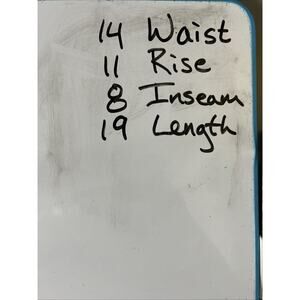 14 Waist
11 Rise
8 Inseam
19 Length